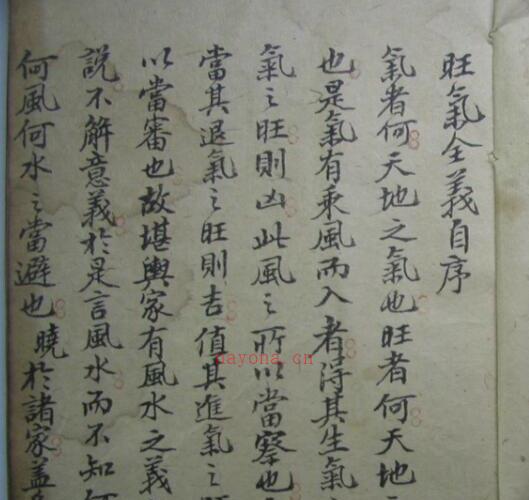 旺氣全義自序
氣者何天地之氣也旺者何天地
也是氣有乘風而入者得其生氣
氣之旺則凶此風之所以當察也
當其退氣之旺則吉值其進氣之
以當審也故堪輿家有風水之義
說不解意義於是言風水而不知
何風何水之當避也曉於諸家蓋
nayona.cn